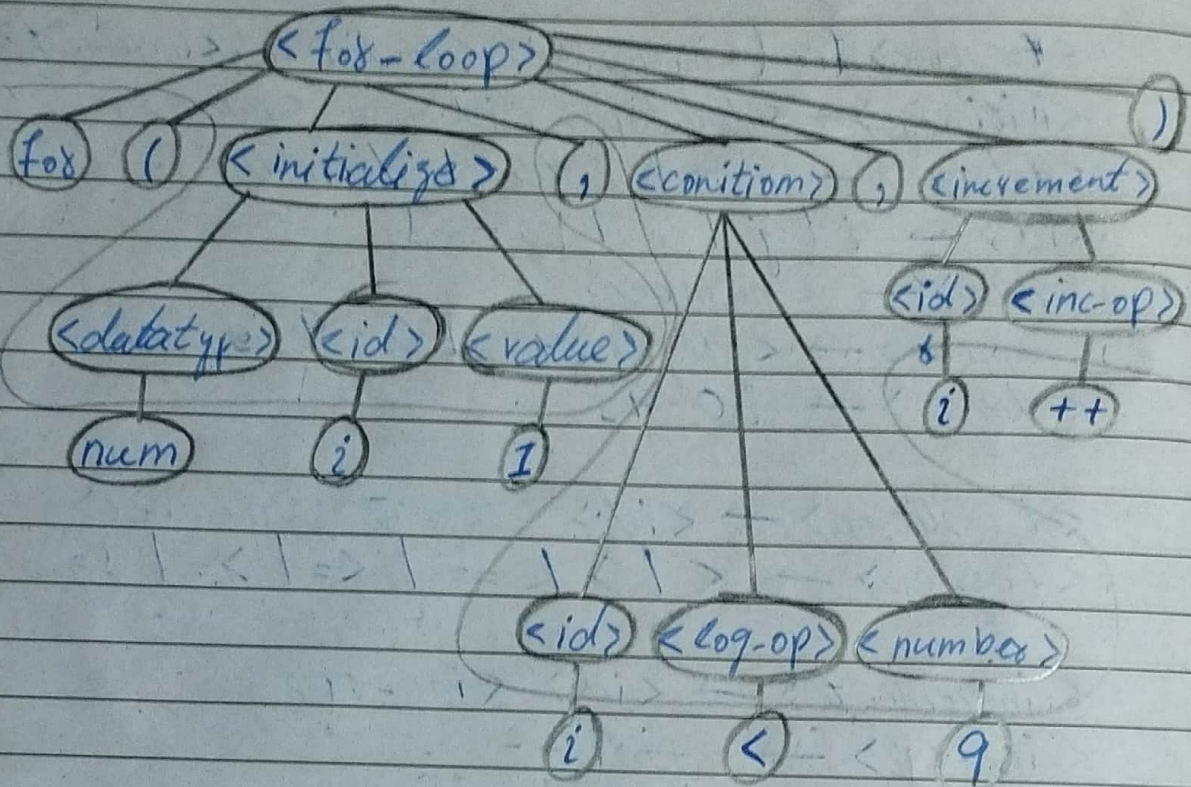 <for-loop>
for ( <initializer> , <conition> , <increment> )
<datatype> <id> <value> <id> <inc-op>
num i 1 i ++
<id> <log-op> <number>
i < 9